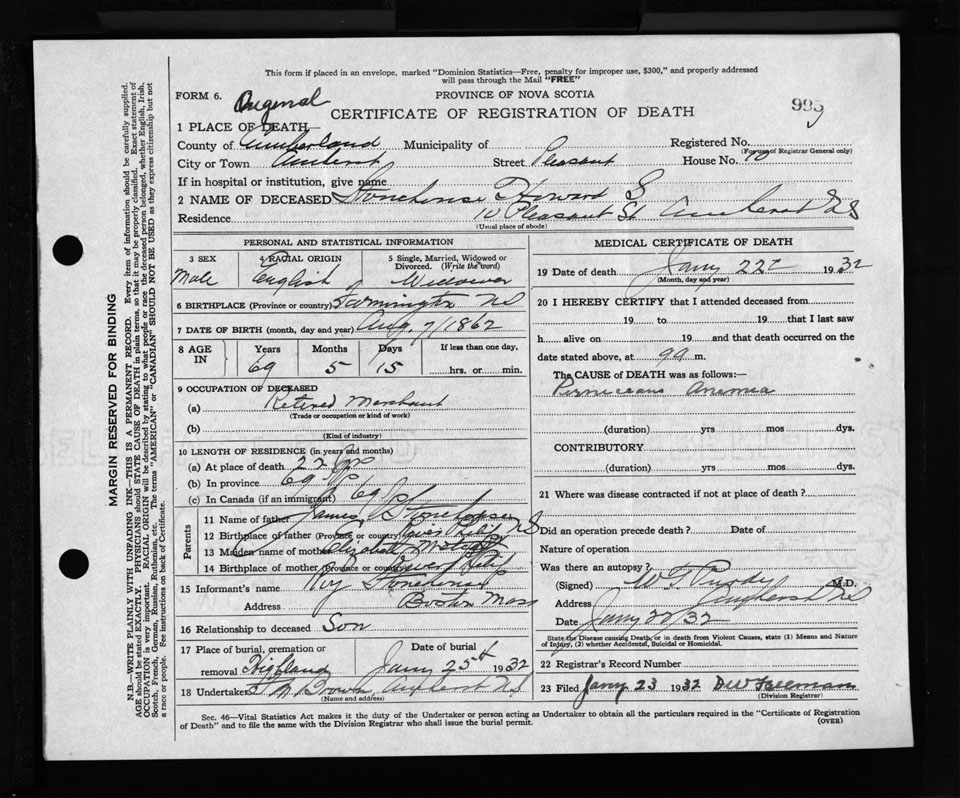 This form if placed in an envelope, marked "Dominion Statistics—Free, penalty for improper use, $300," and properly addressed
will pass through the Mail "FREE"
FORM 6. Original PROVINCE OF NOVA SCOTIA
CERTIFICATE OF REGISTRATION OF DEATH 995
1 PLACE OF DEATH—
County of Cumberland Municipality of Registered No.
(For use of Registrar General only)
City or Town Amherst Street Pleasant House No. 10
If in hospital or institution, give name
2 NAME OF DECEASED Stonehouse Howard S
Residence 10 Pleasant St Amherst NS
(Usual place of abode)
PERSONAL AND STATISTICAL INFORMATION
3 SEX 4 RACIAL ORIGIN 5 Single, Married, Widowed or
Divorced. (Write the word)
Male English Widower
6 BIRTHPLACE (Province or country) Farmington NS
7 DATE OF BIRTH (month, day and year) Aug 7/1862
8 AGE IN Years Months Days If less than one day,
69 5 15 hrs. or min.
9 OCCUPATION OF DECEASED
(a) Retired Merchant
(Trade or occupation or kind of work)
(b)
(Kind of industry)
10 LENGTH OF RESIDENCE (in years and months)
(a) At place of death 22 yrs
(b) In province 69 yrs
(c) In Canada (if an immigrant) 69 yrs
Parents
11 Name of father James Stonehouse
12 Birthplace of father (Province or country) River Philip NS
13 Maiden name of mother Elizabeth
14 Birthplace of mother (Province or country) River Philip
15 Informant's name Roy Stonehouse
Address Boston Mass
16 Relationship to deceased Son
17 Place of burial, cremation or Date of burial
removal Highland Jany 25th 1932
18 Undertaker F M Brown, Amherst NS
(Name and address)
MEDICAL CERTIFICATE OF DEATH
19 Date of death Jany 22 1932
(Month, day and year)
20 I HEREBY CERTIFY that I attended deceased from
19 to 19 that I last saw
h alive on 19 and that death occurred on the
date stated above, at 9 a m.
The CAUSE OF DEATH was as follows:—
Pernicious Anemia
(duration) yrs mos dys.
CONTRIBUTORY
(duration) yrs mos dys.
21 Where was disease contracted if not at place of death?
Did an operation precede death? Date of
Nature of operation
Was there an autopsy?
(Signed) W T Purdy M.D.
Address Amherst NS
Date Jany 22/32
State the Disease causing Death, or in death from Violent Causes, state (1) Means and Nature
of Injury, (2) whether Accidental, Suicidal or Homicidal.
22 Registrar's Record Number
23 Filed Jany 23 1932 DW Freeman
(Division Registrar)
Sec. 46—Vital Statistics Act makes it the duty of the Undertaker or person acting as Undertaker to obtain all the particulars required in the "Certificate of Registration
of Death" and to file the same with the Division Registrar who shall issue the burial permit. (OVER)
MARGIN RESERVED FOR BINDING
N.B.—WRITE PLAINLY WITH UNFADING INK—THIS IS A PERMANENT RECORD. Every item of information should be carefully supplied.
AGE should be stated EXACTLY. PHYSICIANS should STATE CAUSE OF DEATH in plain terms, so that it may be properly classified. Exact statement of
OCCUPATION is very important. RACIAL ORIGIN will be described by stating to what people or race the deceased person belonged, whether English, Irish,
Scotch, French, German, Russian, Ruthenian, etc. The terms "AMERICAN" or "CANADIAN" SHOULD NOT BE USED as they express citizenship but not
a race or people. See instructions on back of Certificate.